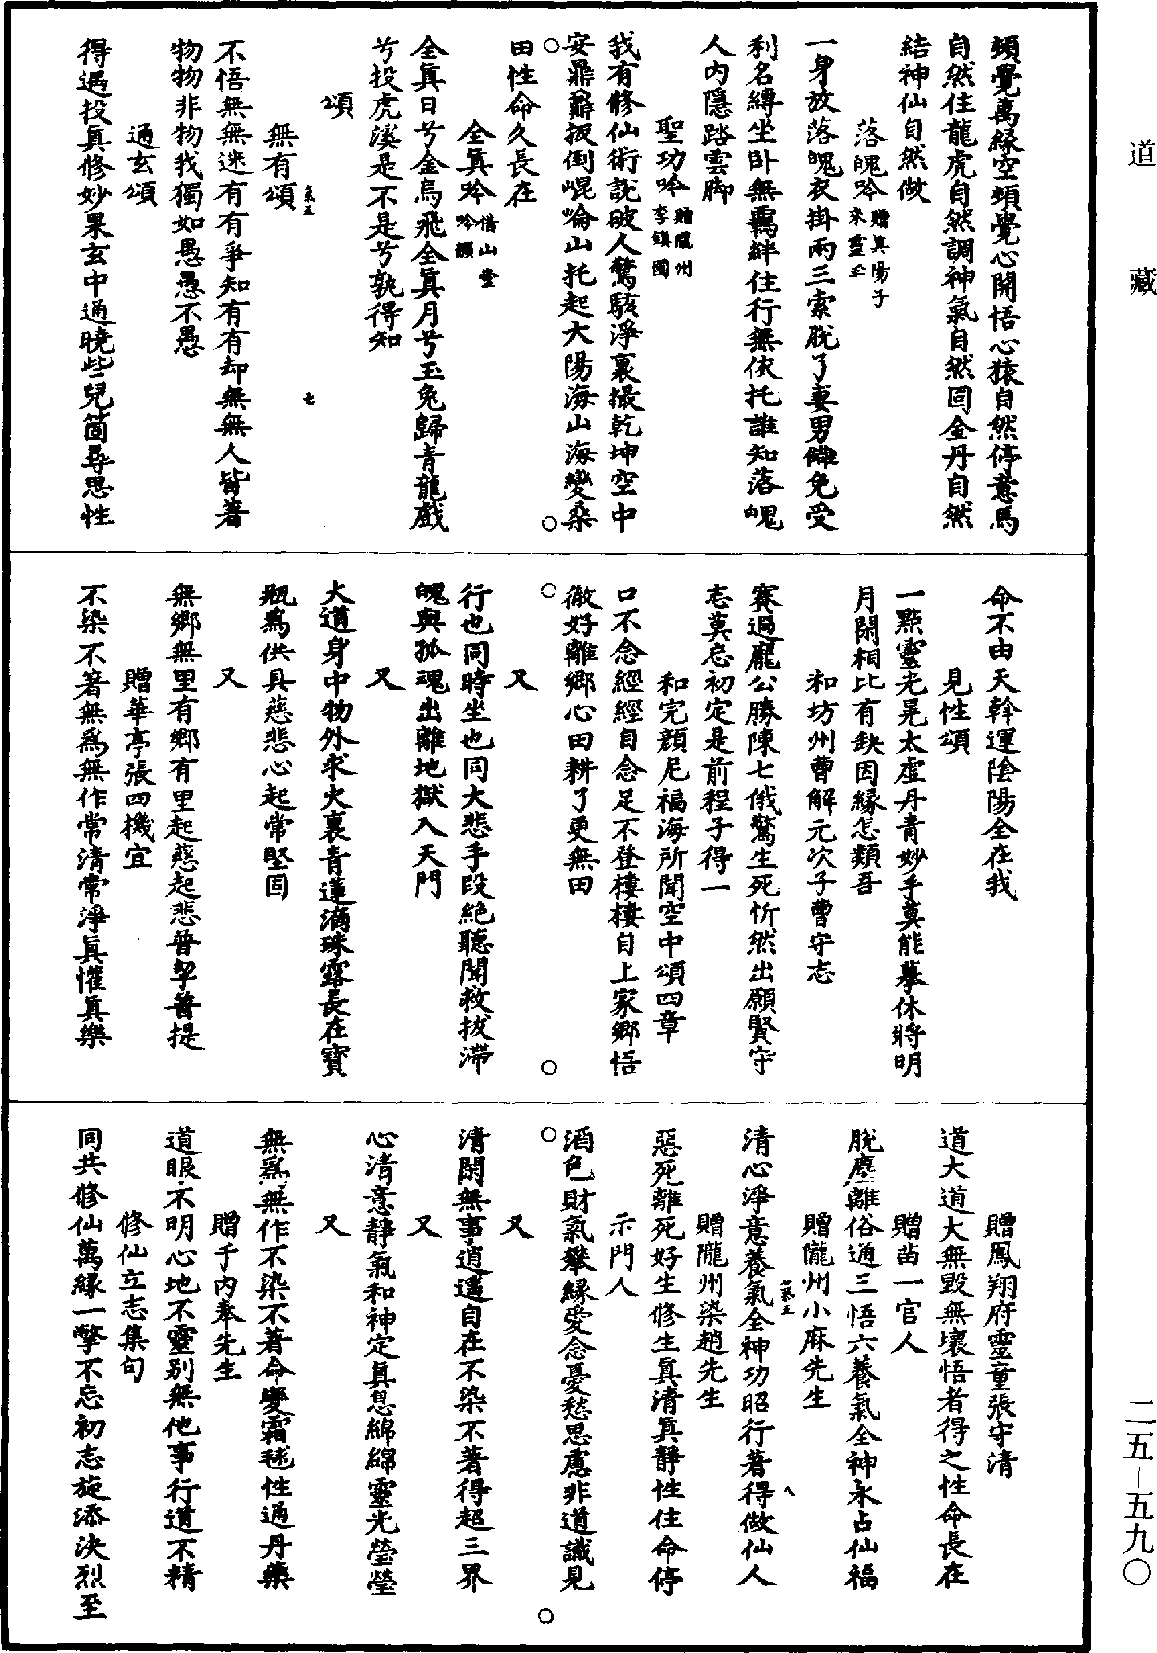 道藏
頓覺萬緣空頓覺心開悟心猿自然停意馬
自然住龍虎自然調神氣自然固金丹自然
結神仙自然做
落魄吟贈與陽子來靈玉
一身放落魄衣掛兩三索脫了妻男讎免受
利名縛坐卧無羈絆住行無依托誰知落魄
人內隱踏雲脚
聖功吟贈隴州李鎮國
我有修仙術說破人驚駭淨裏撮乾坤空中
安鼎鼐扳倒崐崘山托起大陽海山海變桑
田性命久長在
全真吟惜山堂吟韻
全真日兮金烏飛全真月兮玉兔歸青龍戲
兮投虎溪是不是兮孰得知
頌
無有頌
不悟無無迷有有爭知有有却無無人皆著
物物非物我獨如愚愚不愚
通玄頌
得遇投真修妙果玄中通曉些兒箇尋思性
命不由天斡運陰陽全在我
見性頌
一點靈光晃太虛丹青妙手莫能摹休將明
月閑相比有缺因緣怎類吾
和坊州曹解元次子曹守志
賽過龐公勝陳七俄驚生死忻然出願賢守
志莫忘初定是前程子得一
和完顏尼福海所聞空中頌四章
口不念經經自念足不登樓樓自上家鄉悟
徹好離鄉心田耕了更無田
又
行也同時坐也同大悲手段絕聽聞救拔滯
魄與孤魂出離地獄入天門
又
大道身中物外求火裏青蓮滴珠露長在寶
瓶為供具慈悲心起常堅固
又
無鄉無里有鄉有里起慈起悲普契菩提
贈華亭張四機宜
不染不著無為無作常清常淨真懽真樂
贈鳳翔府靈童張守清
道大道大無毀無壞悟者得之性命長在
贈苗一官人
脫塵離俗通三悟六養氣全神永占仙福
贈隴州小麻先生
清心淨意養氣全神功昭行著得做仙人
贈隴州染趙先生
惡死離死好生修生真清真靜性住命停
示門人
酒色財氣攀緣愛念憂愁思慮非道識見
又
清閑無事逍遙自在不染不著得超三界
又
心清意靜氣和神定真息綿綿靈光瑩瑩
又
無為無作不染不著命變霜毬性通丹藥
贈千內奉先生
道眼不明心地不靈別無他事行道不精
修仙立志集句
同共修仙萬緣一擎不忘初志施添決烈至
二五—五九〇